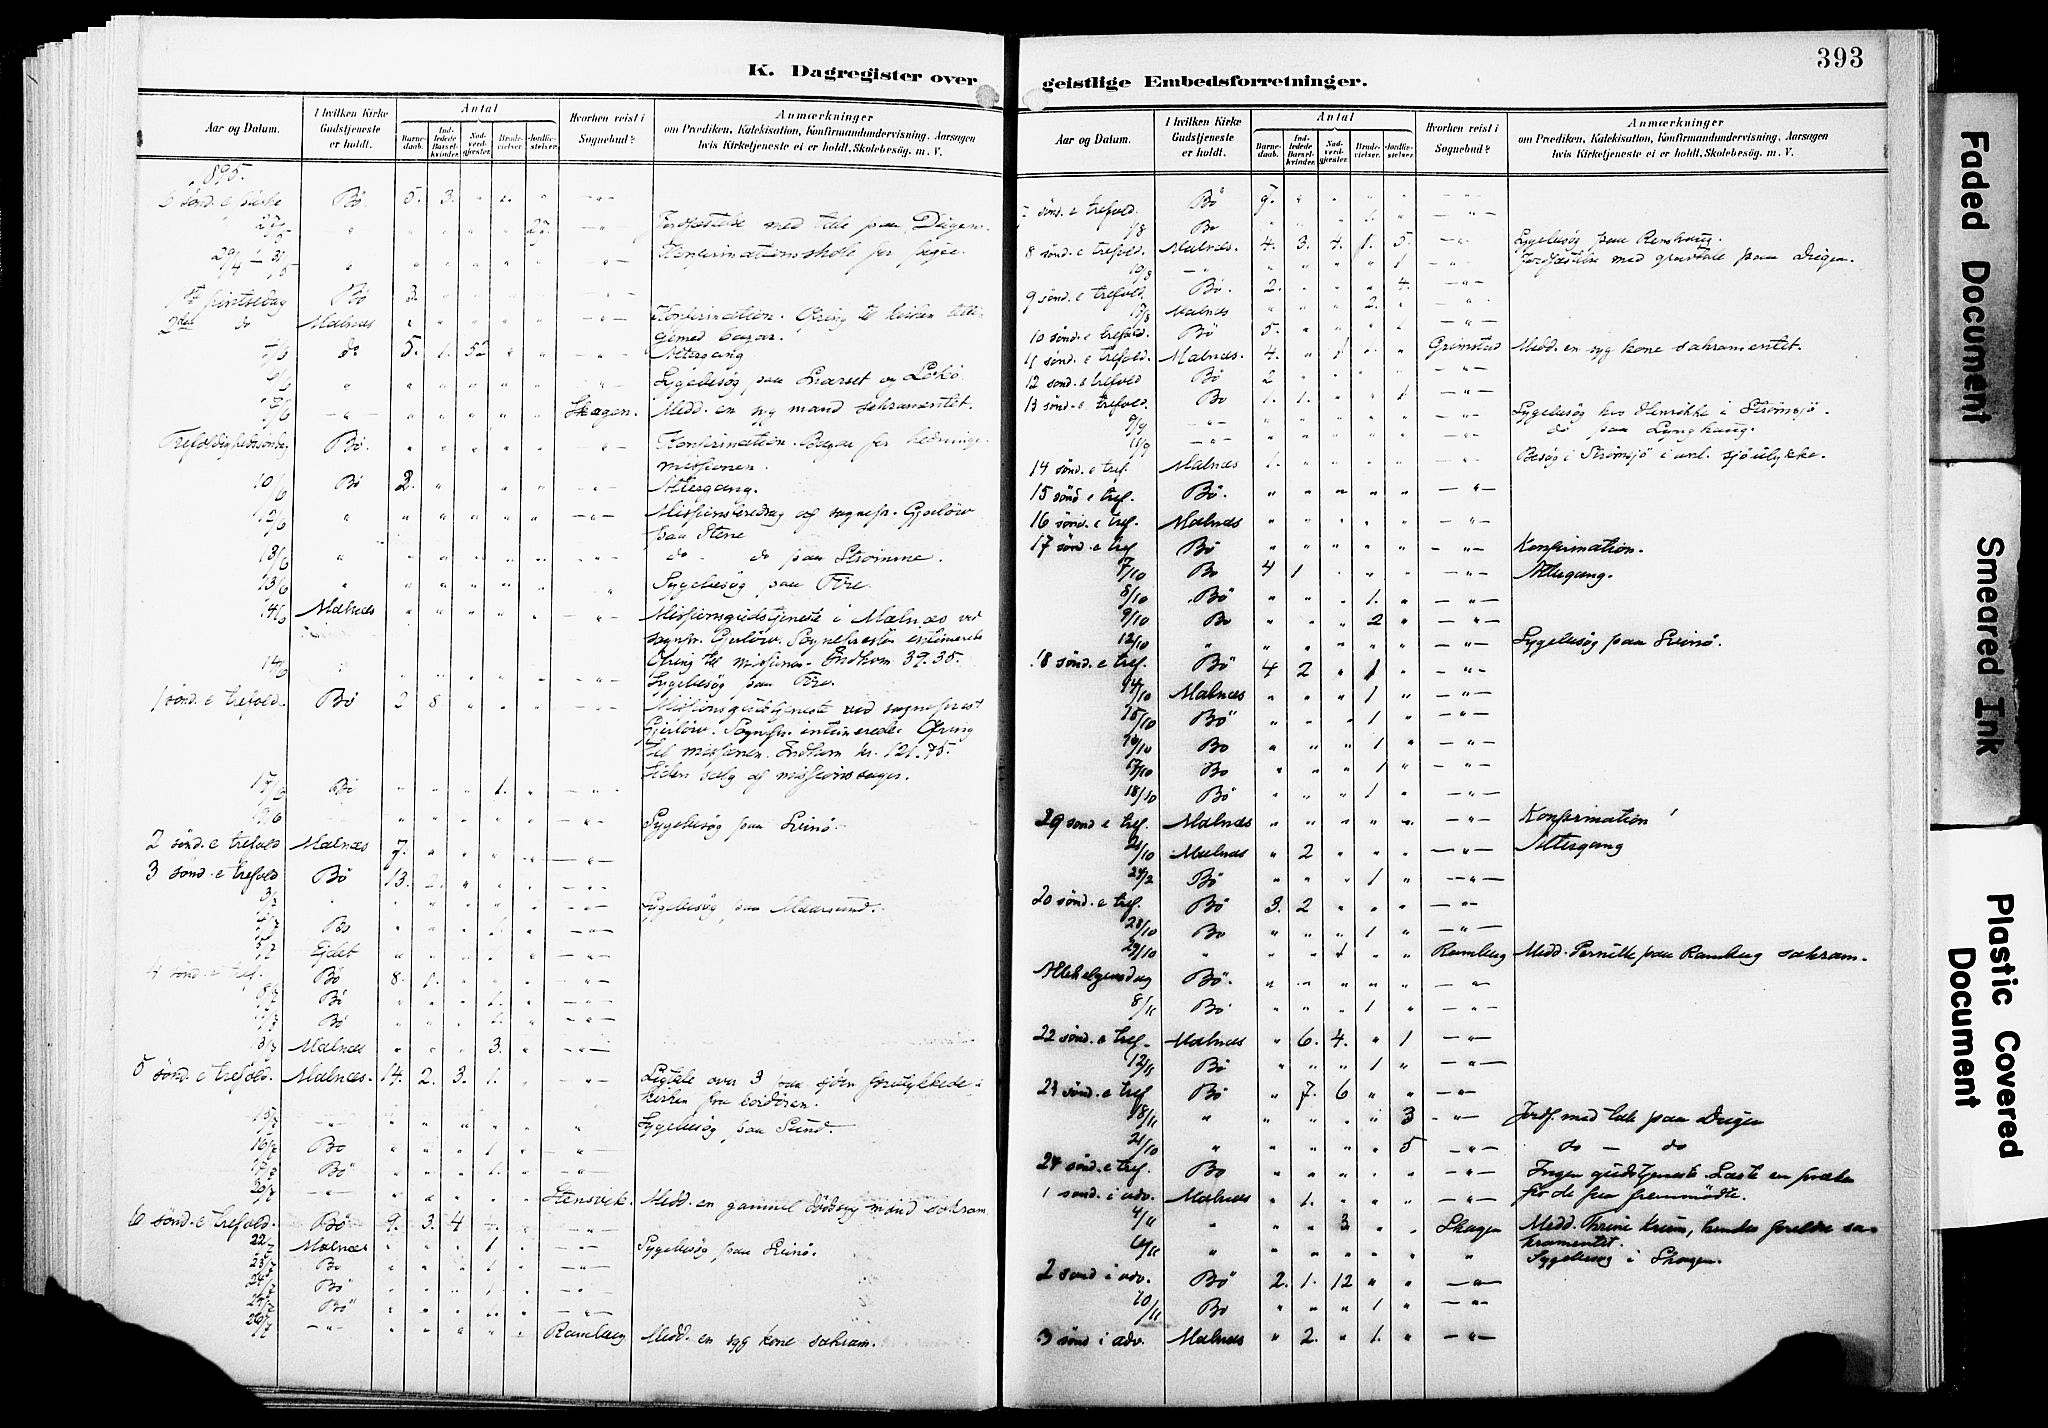 K. Dagregister over
Aar og Datum.
I hvilken Kirke Gudstjeneste er holdt.
Antal
Barnedaab.
Indledede Barselkvinder.
Nadverdgjester.
Brudevielser.
Jordfæstelser.
Hvorhen reist i Sognebud?
Anmærkninger
om Prædiken, Katekisation, Konfirmandundervisning, Aarsagen
hvis Kirketjeneste ei er holdt. Skolebesøg. m. V.
6 sønd. e påske Bö. 5. 3. " 2. " — " —
" " " " " 25. — " — Jordfæstelse med tale paa Digen.
" " " " " " — " — Konfirmationsskole før pigse.
1ste pintsedag Bö 3. " " " " — " —
2den do Malnæs " " " " " — " — Konfirmation. Ofring til kirken
do 5. 1. 52 " " Altergang
6/6 " " " " " " — " — Sygebesøg paa
7/6 — " — " " " " " Skagen. Medd. en syg mand sakramentet.
Trefoldighedssøndag Bö. " " " " " — " — Konfirmation. Bøgar for hedninge-
missionen.
10/6 Bö 2. " " " " — " — Altergang.
12/6 " " " " " " — " — Missionsforedrag af sognepr. Gjerløw
paa Stene
13/6 " " " " " " do do paa Strømme.
13/6 " " " " " " — " — Sygebesøg paa Føre.
14/6 Malnæs " " " " " — " — Missionsgudstjeneste i Malnæs ved
sognepr. Gjerløw. Sognepresten intimerede
Ofring til missionen. Indkom 39.35.
14/6 " " " " " " — " — Sygebesøg paa Føre.
1 sønd. e trefold. Bö 2 8 " " " — " — Missionsgudstjeneste ved sogneprest
Gjerløw. Sognepr. intimerede. Ofring
til missionen. Indkom kr. 121.75.
Siden salg af missionssager.
17/6 Bö " " " 1. " — " —
19/6 " " " " " " — " — Sygebesøg paa Svinø.
2 sønd. e trefold Malnæs 7. " " " " — " —
3 sønd. e trefold Bö 13. 2. " " " — " —
3/7 " " " " " " — " — Sygebesøg paa
4/7 Bö " " " 1. " — " —
5/7 Eidet " " " 1. " — " —
4 sønd. e tref. Bö 8. 1. " " " — " —
8/7 Bö " " " 1. " — " —
11/7 Bö " " " 1. " — " —
13/7 Malnæs " " " 3. " — " —
5 sønd. e trefold. Malnæs. 14. 2. 3. 1. " — " — Ligtale over 3 paa sjøen forulykkede i
kirken fra kordøren.
15/7 — " — " " " " " " Sygebesøg paa Sund.
16/7 Bö " " " 1. " — " —
19/7 Bö " " " 1. " — " —
20/7 — " — " " " " " Steinsvik. Medd. en gammel dødssyg mand sakram
6 sønd. e trefold. Bö 9. 3. 4 1. " — " —
22/7 Malnæs " " " 1 " — " — Sygebesøg paa Svinø.
23/7 Bö " " " 1. " — " —
24/7 Bö " " " 1. " — " —
Bö " " " 1. " — " —
26/7 — " — " " " " " Ramberg Medd. en syg kone sakram.
393
geistlige Embedsforretninger.
Aar og Datum.
I hvilken Kirke Gudstjeneste er holdt.
Antal
Barnedaab.
Indledede Barselkvinder.
Nadverdgjester.
Brudevielser.
Jordfæstelser.
Hvorhen reist i Sognebud?
Anmærkninger
om Prædiken, Katekisation, Konfirmandundervisning, Aarsagen
hvis Kirketjeneste ei er holdt. Skolebesøg. m. V.
7 sønd. e trefold. Bö 9. " " " " — " —
1/8 Bo " " " 1. " — " —
8 sønd. e trefold. Malnæs. 4. 3. 4. 1. 5. — " — Sygebesøg paa Renshaug.
10/8 — " — " " " " 1 — " — Jordfæstelse med gravtale paa Digen.
9 sønd. e trefold. Bö. 2. " " " 4. — " —
17/8 Malnæs " " " 2. " — " —
10 sønd. e trefold. Bö 5. " " " 1 — " —
11 sønd. e trefold. Malnæs. 4. " 1 1. " Grimstad Medd. en syg kone sakramentet.
12 sønd. e trefold Bö 2 " " " " — " —
13 sønd. e trefold. Bo 1. 1. " " 1 — " —
9/9 — " — " " " " " — " — Sygebesøg hos Henrikke i Strømsjø.
11/9 — " — " " " " " — " — do paa Lynghaug.
14 sønd. e tref. Malnæs 1. " " " " — " — Besøg i Strømsjø i anl. sjøulykke.
15 sønd e tref. Bö. " " " " " — " —
16 sønd. e tref. Malnæs " " " " " — " —
17 sønd. e tref Bö " " " " " — " — Konfirmation.
7/10 Bo 4 1 " " " — " — Altergang.
8/10 Bö " " " 1. " — " —
9/10 Bo " " " 2 " — " —
12/10 " " " " " " — " — Sygebesøg paa Svinø.
18 sønd. e tref. Bö 4 2 " 1 " — " —
14/10 Malnæs " " " 1 " — " —
15/10 Bö " " " 1 " — " —
16/10 Bo " " " 1 " — " —
17/10 Bo " " " 1 " — " —
18/10 Bö " " " 1 " — " —
29 sønd e tref. Malnæs " " " " " — " — Konfirmation
21/10 Malnæs " 2 " " " — " — Altergang
Bö " " " 1 " — " —
20 sønd. e tref. Bö 3. 2 " " " — " —
28/10 Bo " " " 1 " — " —
29/10 " " " 1 " " Ramberg Medd. Pernille paa Ramberg sakram.
Allehelgensdag Bö. " " " " " — " —
8/11 Bö " " " 1 " — " —
22 sønd. e tref. Malnæs " 6. 4. " 1 — " —
12/11 Bö " " " 1 " — " —
23 sønd. e tref Bö " 7. 6 " " — " —
18/11 " " " " " 3 — " — Jordf. med tale paa Digen
21/10 " " " " " 5 — " — do — do
24 sønd. e tref. Bo " " " " " — " — Ingen gudstjeneste. Læste en præken
1 sønd. i adv. Malnæs " 1. " " " — " — for de faa fremmødte.
4/11 " " " 3 " " Skagen Medd. Thrine Krüm, hendes forældre sa-
kramentet.
6/11 " " " " " " " Sygebesøg i Skagen.
2 sønd i adv. Bö 2. 1. 12 " " — " —
10/11 Bo " " " 1 " — " —
3 sønd i adv. Malnæs " 2. " 1. " — " —
Faded Document
Smeared Ink
Plastic Covered
Document